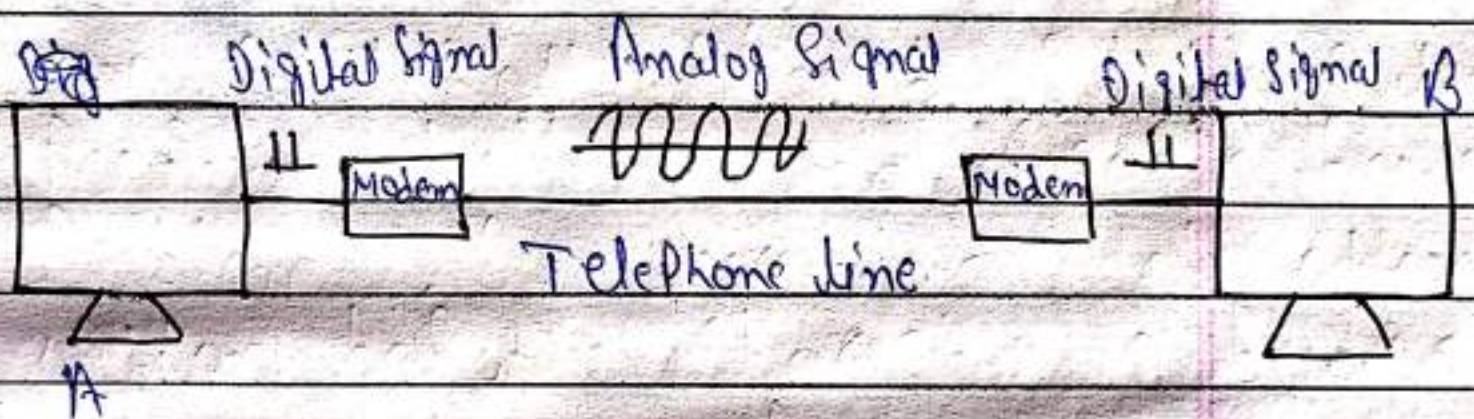 Digital Signal Analog Signal Digital Signal B
Modem Modem
Telephone line
A